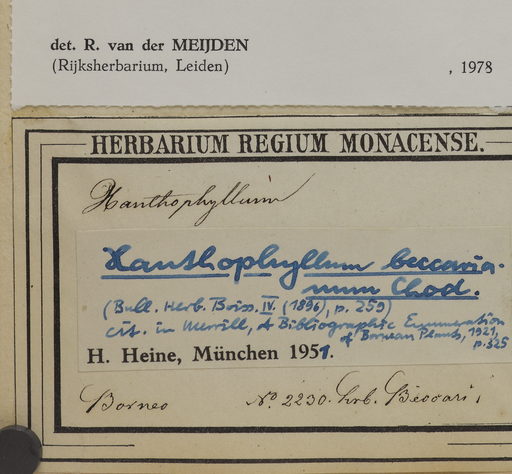 det. R. van der MEIJDEN
(Rijksherbarium, Leiden) , 1978
HERBARIUM REGIUM MONACENSE.
Xanthophyllum
Xanthophyllum beccaria-
num Chod.
(Bull. Herb. Boiss. IV (1896), p. 259)
cit. in Merrill, A Bibliographic Enumeration
of Bornean Plants, 1921,
p. 325
H. Heine, München 1951.
Borneo No. 2230. hrb. Beccari,